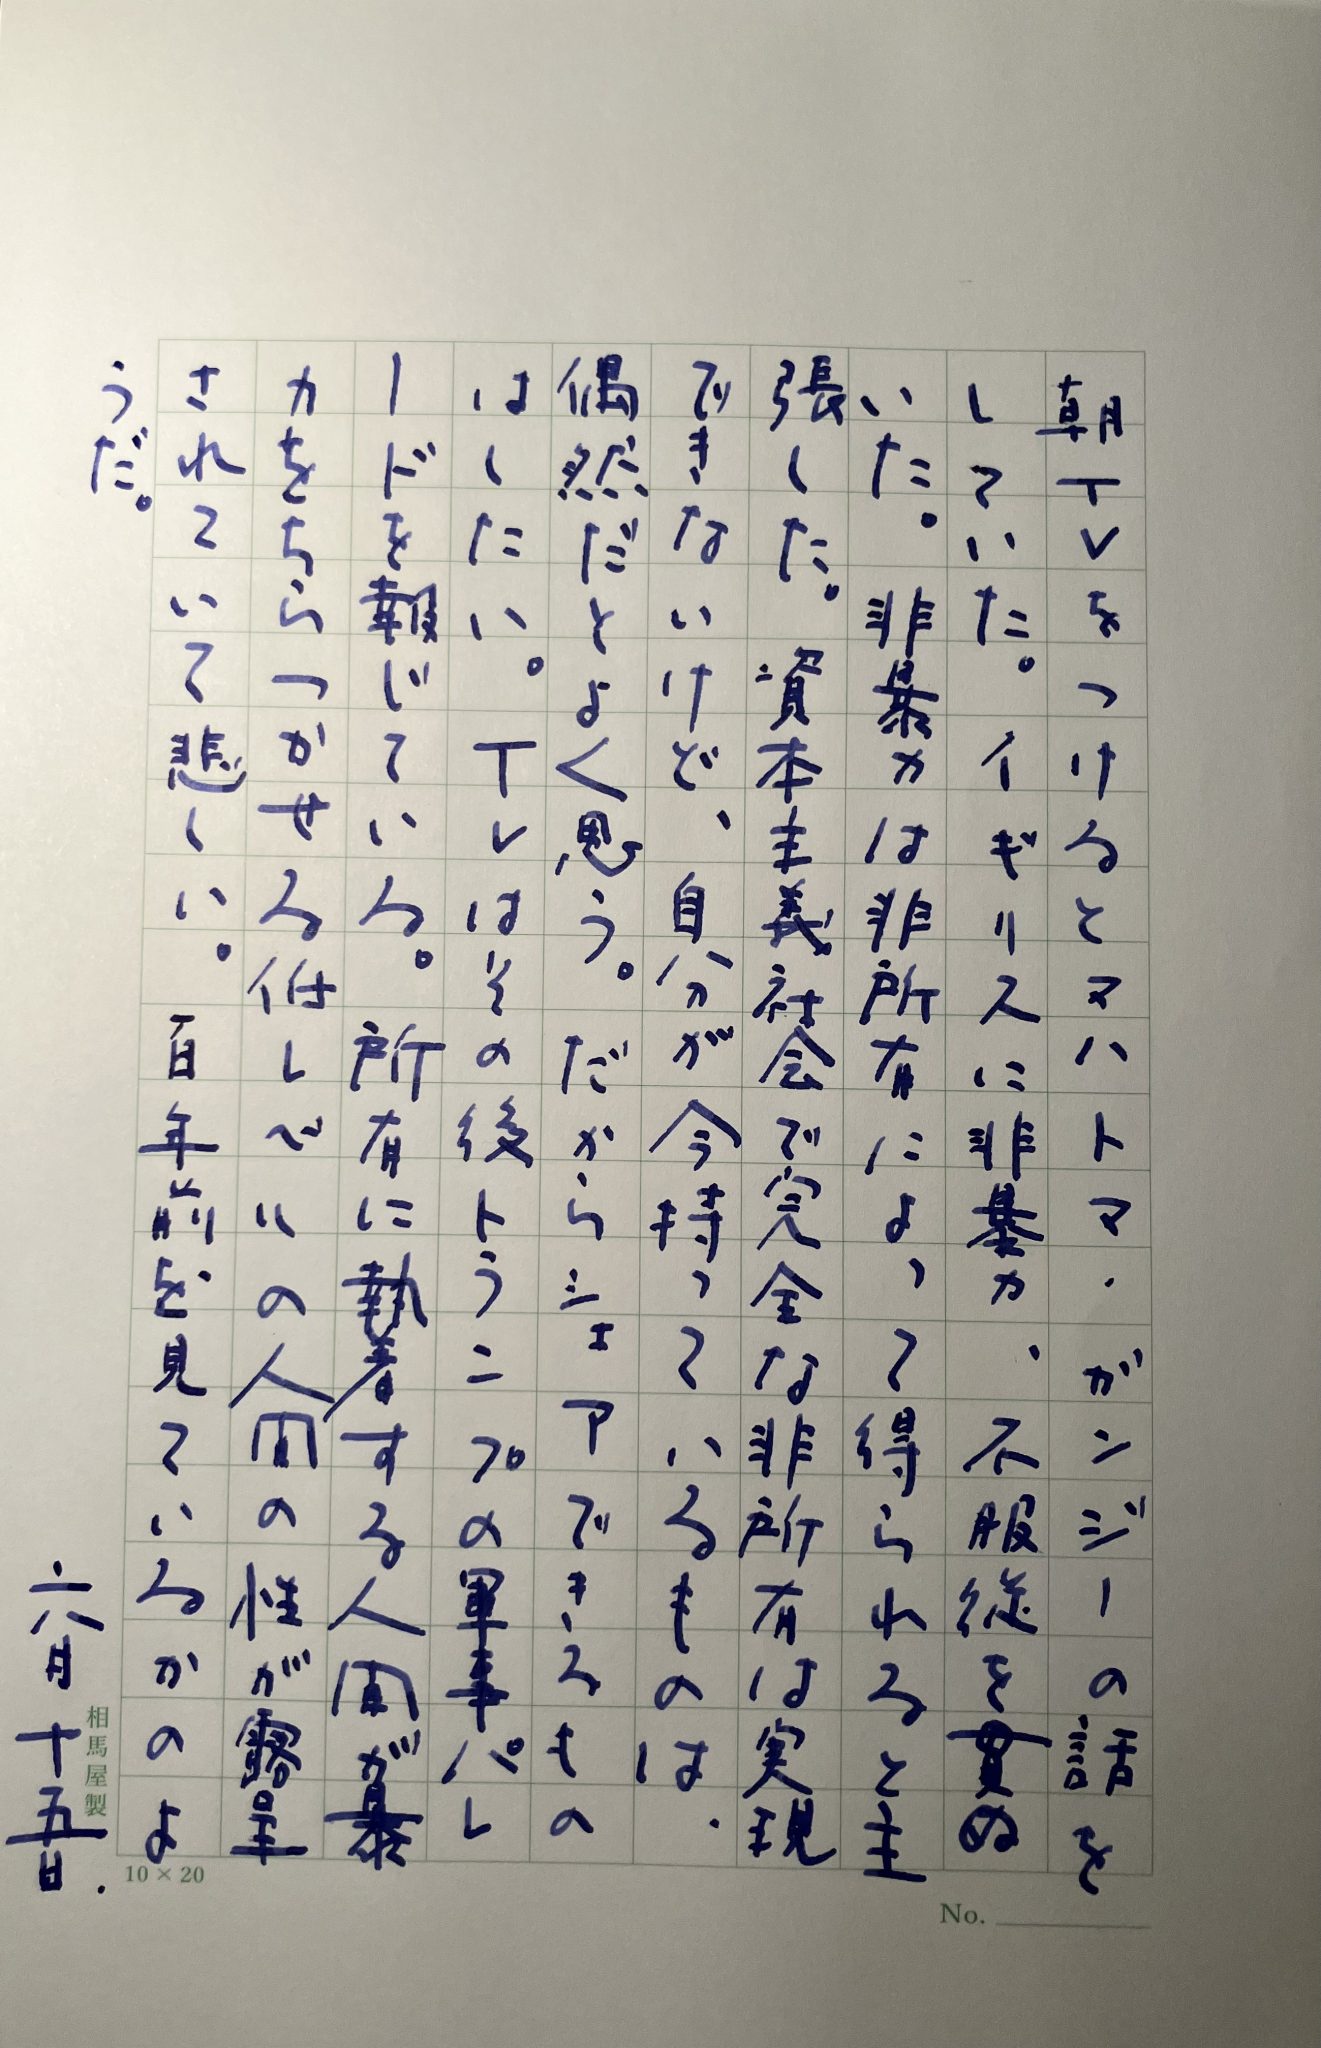 朝TVをつけるとマハトマ・ガンジーの話を
していた。イギリスに非暴力、不服従を貫ぬ
いた。非暴力は非所有によって得られると主
張した。資本主義社会で完全な非所有は実現
できないけど、自分が今持っているものは、
偶然だとよく思う。だからシェアできるもの
はしたい。TVはその後トランプの軍事パレ
ードを報じている。所有に執着する人間が暴
力をちらつかせる付しべいの人間の性が露呈
されていて悲しい。百年前を見ているかのよ
うだ。
六月十五日.
相馬屋製
10×20
No.